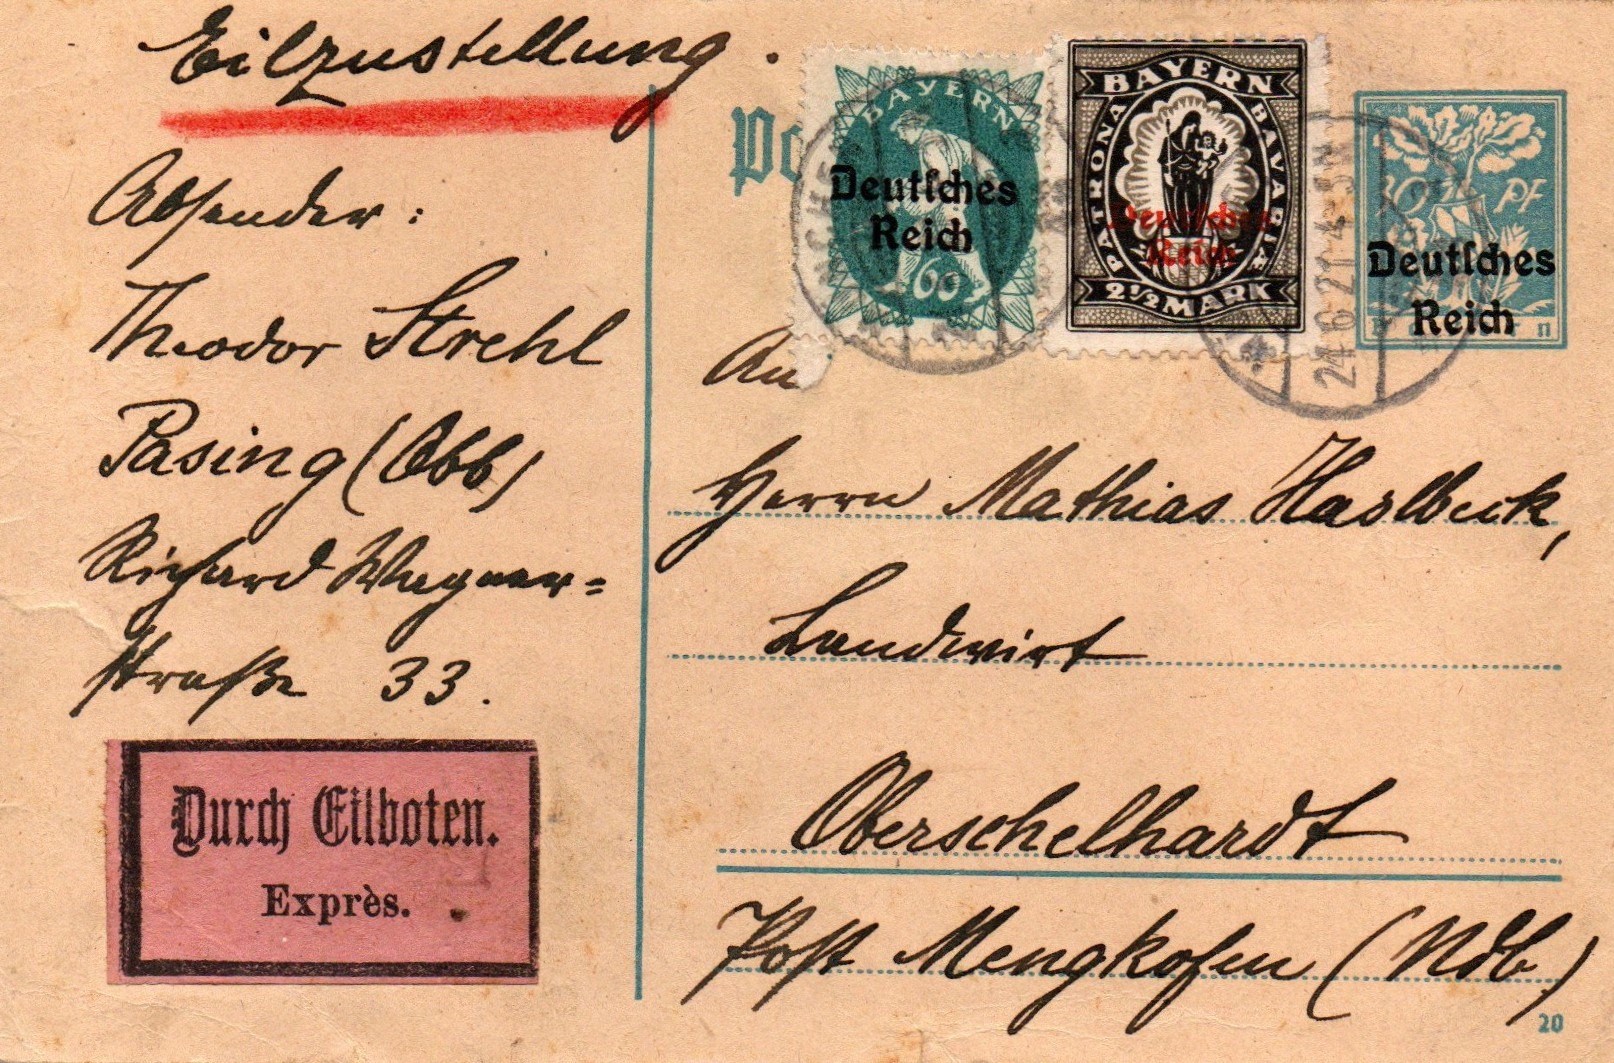 Eilzustellung.
Absender:
Theodor Strehl
Pasing (Obb)
Richard Wagner=
straße 33.
Durch Eilboten.
Exprès.
Po
BAYERN
Deutſches
Reich
60
BAYERN
PATRONA BAVARIÆ
Deutsches
Reich
2½ MARK
30 PF
Deutſches
Reich
24 6 21 4-5N
An
Herrn Mathias Haslbeck,
Landwirt
Oberschelhardt
Post Mengkofen (Ndb)
20